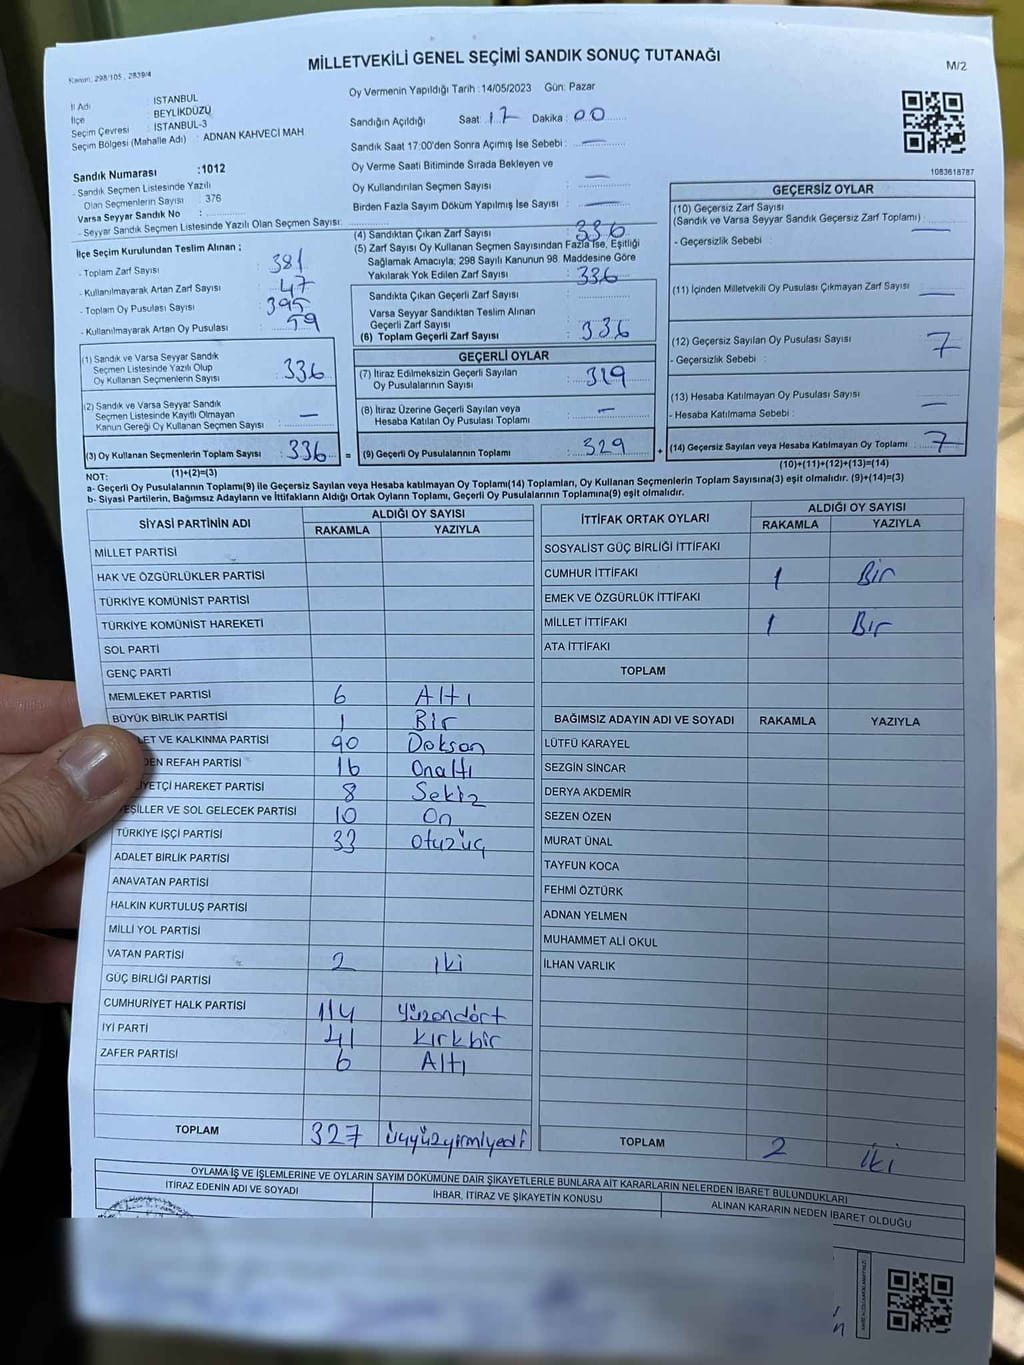 MİLLETVEKİLİ GENEL SEÇİMİ SANDIK SONUÇ TUTANAĞI
M/2
Kanun. 298/105 , 2839/4
İl Adı : İSTANBUL
İlçe : BEYLİKDÜZÜ
Seçim Çevresi : İSTANBUL-3
Seçim Bölgesi (Mahalle Adı) : ADNAN KAHVECİ MAH
Sandık Numarası :1012
- Sandık Seçmen Listesinde Yazılı
Olan Seçmenlerin Sayısı : 376
Varsa Seyyar Sandık No :
- Seyyar Sandık Seçmen Listesinde Yazılı Olan Seçmen Sayısı:
Oy Vermenin Yapıldığı Tarih :14/05/2023 Gün: Pazar
Sandığın Açıldığı Saat :17 Dakika : 00
Sandık Saat 17:00'den Sonra Açımış İse Sebebi : —
Oy Verme Saati Bitiminde Sırada Bekleyen ve
Oy Kullandırılan Seçmen Sayısı : —
Birden Fazla Sayım Döküm Yapılmış İse Sayısı : —
1083618787
İlçe Seçim Kurulundan Teslim Alınan ;
- Toplam Zarf Sayısı : 381
- Kullanılmayarak Artan Zarf Sayısı : 47
- Toplam Oy Pusulası Sayısı : 395
- Kullanılmayarak Artan Oy Pusulası : 59
(1) Sandık ve Varsa Seyyar Sandık
Seçmen Listesinde Yazılı Olup
Oy Kullanan Seçmenlerin Sayısı : 336
(2) Sandık ve Varsa Seyyar Sandık
Seçmen Listesinde Kayıtlı Olmayan
Kanun Gereği Oy Kullanan Seçmen Sayısı : —
(3) Oy Kullanan Seçmenlerin Toplam Sayısı : 336 =
(4) Sandıktan Çıkan Zarf Sayısı : 336
(5) Zarf Sayısı Oy Kullanan Seçmen Sayısından Fazla İse, Eşitliği
Sağlamak Amacıyla; 298 Sayılı Kanunun 98. Maddesine Göre
Yakılarak Yok Edilen Zarf Sayısı : 336
Sandıkta Çıkan Geçerli Zarf Sayısı :
Varsa Seyyar Sandıktan Teslim Alınan
Geçerli Zarf Sayısı :
(6) Toplam Geçerli Zarf Sayısı : 336
GEÇERLİ OYLAR
(7) İtiraz Edilmeksizin Geçerli Sayılan
Oy Pusulalarının Sayısı : 319
(8) İtiraz Üzerine Geçerli Sayılan veya
Hesaba Katılan Oy Pusulası Toplamı : —
(9) Geçerli Oy Pusulalarının Toplamı : 329 +
GEÇERSİZ OYLAR
(10) Geçersiz Zarf Sayısı
(Sandık ve Varsa Seyyar Sandık Geçersiz Zarf Toplamı) : —
- Geçersizlik Sebebi :
(11) İçinden Milletvekili Oy Pusulası Çıkmayan Zarf Sayısı : —
(12) Geçersiz Sayılan Oy Pusulası Sayısı : 7
- Geçersizlik Sebebi :
(13) Hesaba Katılmayan Oy Pusulası Sayısı : —
- Hesaba Katılmama Sebebi :
(14) Geçersiz Sayılan veya Hesaba Katılmayan Oy Toplamı : 7
NOT: (1)+(2)=(3)
(10)+(11)+(12)+(13)=(14)
a- Geçerli Oy Pusulalarının Toplamı(9) ile Geçersiz Sayılan veya Hesaba katılmayan Oy Toplamı(14) Toplamları, Oy Kullanan Seçmenlerin Toplam Sayısına(3) eşit olmalıdır. (9)+(14)=(3)
b- Siyasi Partilerin, Bağımsız Adayların ve İttifakların Aldığı Ortak Oyların Toplamı, Geçerli Oy Pusulalarının Toplamına(9) eşit olmalıdır.
SİYASİ PARTİNİN ADI ALDIĞI OY SAYISI
RAKAMLA YAZIYLA
MİLLET PARTİSİ
HAK VE ÖZGÜRLÜKLER PARTİSİ
TÜRKİYE KOMÜNİST PARTİSİ
TÜRKİYE KOMÜNİST HAREKETİ
SOL PARTİ
GENÇ PARTİ
MEMLEKET PARTİSİ 6 Altı
BÜYÜK BİRLİK PARTİSİ 1 Bir
LET VE KALKINMA PARTİSİ 90 Doksan
DEN REFAH PARTİSİ 16 Onaltı
İYETÇİ HAREKET PARTİSİ 8 Sekiz
YEŞİLLER VE SOL GELECEK PARTİSİ 10 On
TÜRKİYE İŞÇİ PARTİSİ 33 otuzüç
ADALET BİRLİK PARTİSİ
ANAVATAN PARTİSİ
HALKIN KURTULUŞ PARTİSİ
MİLLİ YOL PARTİSİ
VATAN PARTİSİ 2 İki
GÜÇ BİRLİĞİ PARTİSİ
CUMHURİYET HALK PARTİSİ 114 Yüzondört
İYİ PARTİ 41 Kırkbir
ZAFER PARTİSİ 6 Altı
TOPLAM 327 üçyüzyirmiyedi
İTTİFAK ORTAK OYLARI ALDIĞI OY SAYISI
RAKAMLA YAZIYLA
SOSYALİST GÜÇ BİRLİĞİ İTTİFAKI
CUMHUR İTTİFAKI 1 Bir
EMEK VE ÖZGÜRLÜK İTTİFAKI
MİLLET İTTİFAKI 1 Bir
ATA İTTİFAKI
TOPLAM
BAĞIMSIZ ADAYIN ADI VE SOYADI RAKAMLA YAZIYLA
LÜTFÜ KARAYEL
SEZGİN SİNCAR
DERYA AKDEMİR
SEZEN ÖZEN
MURAT ÜNAL
TAYFUN KOCA
FEHMİ ÖZTÜRK
ADNAN YELMEN
MUHAMMET ALİ OKUL
İLHAN VARLIK
TOPLAM 2 İki
OYLAMA İŞ VE İŞLEMLERİNE VE OYLARIN SAYIM DÖKÜMÜNE DAİR ŞİKAYETLERLE BUNLARA AİT KARARLARIN NELERDEN İBARET BULUNDUKLARI
İTİRAZ EDENİN ADI VE SOYADI İHBAR, İTİRAZ VE ŞİKAYETİN KONUSU ALINAN KARARIN NEDEN İBARET OLDUĞU